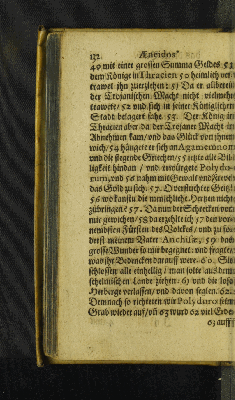 132 Æneidos
40 mit einer grossen Summa Geldes 51
dem Könige in Thracien 50 heimlich ver
trawet ihn zuerziehen: 51 Da er allbereit
der Trojanischen Macht nicht vielmehr
trawete/ 52 und sich in seiner Königlichen
Stadt belagert sahe. 53. Der König in
Thracien aber da der Trojaner Macht in
Abnehmen kam/ und das Glück von ihnen
wich/ 54 hängete er sich an Agamemnom
und die siegende Griechen/ 55 setzte alle Bil-
ligkeit hindan/ und erwürgete Polydo-
rum, und 56 nahm mit Gewalt und
das Gold zu sich. 57. O verfluchter Geitz/
56 wo kanstu die menschliche Hertzen nicht
zubringen? 57. Da nun der Schrecken von
mir gewichen/ 58 da erzehlt ich 57 den vor-
nembsten Fürsten des Volckes/ und zu
derst meinem Vater Anchisæ, 59 das
grosse Wunder so mir begegnet: und fragte/
was ihr Bedencken darauff were. 60. Sie
schlossen alle einhellig/ man solte auß dem
schelmischen Lande ziehen: 61 und die
Herberge verlassen/ und davon seglen. 62.
Demnach so richteten wir Polydoro sein
Grab wieder auf/ uñ 63 wurd 62 viel Erde
63 auff